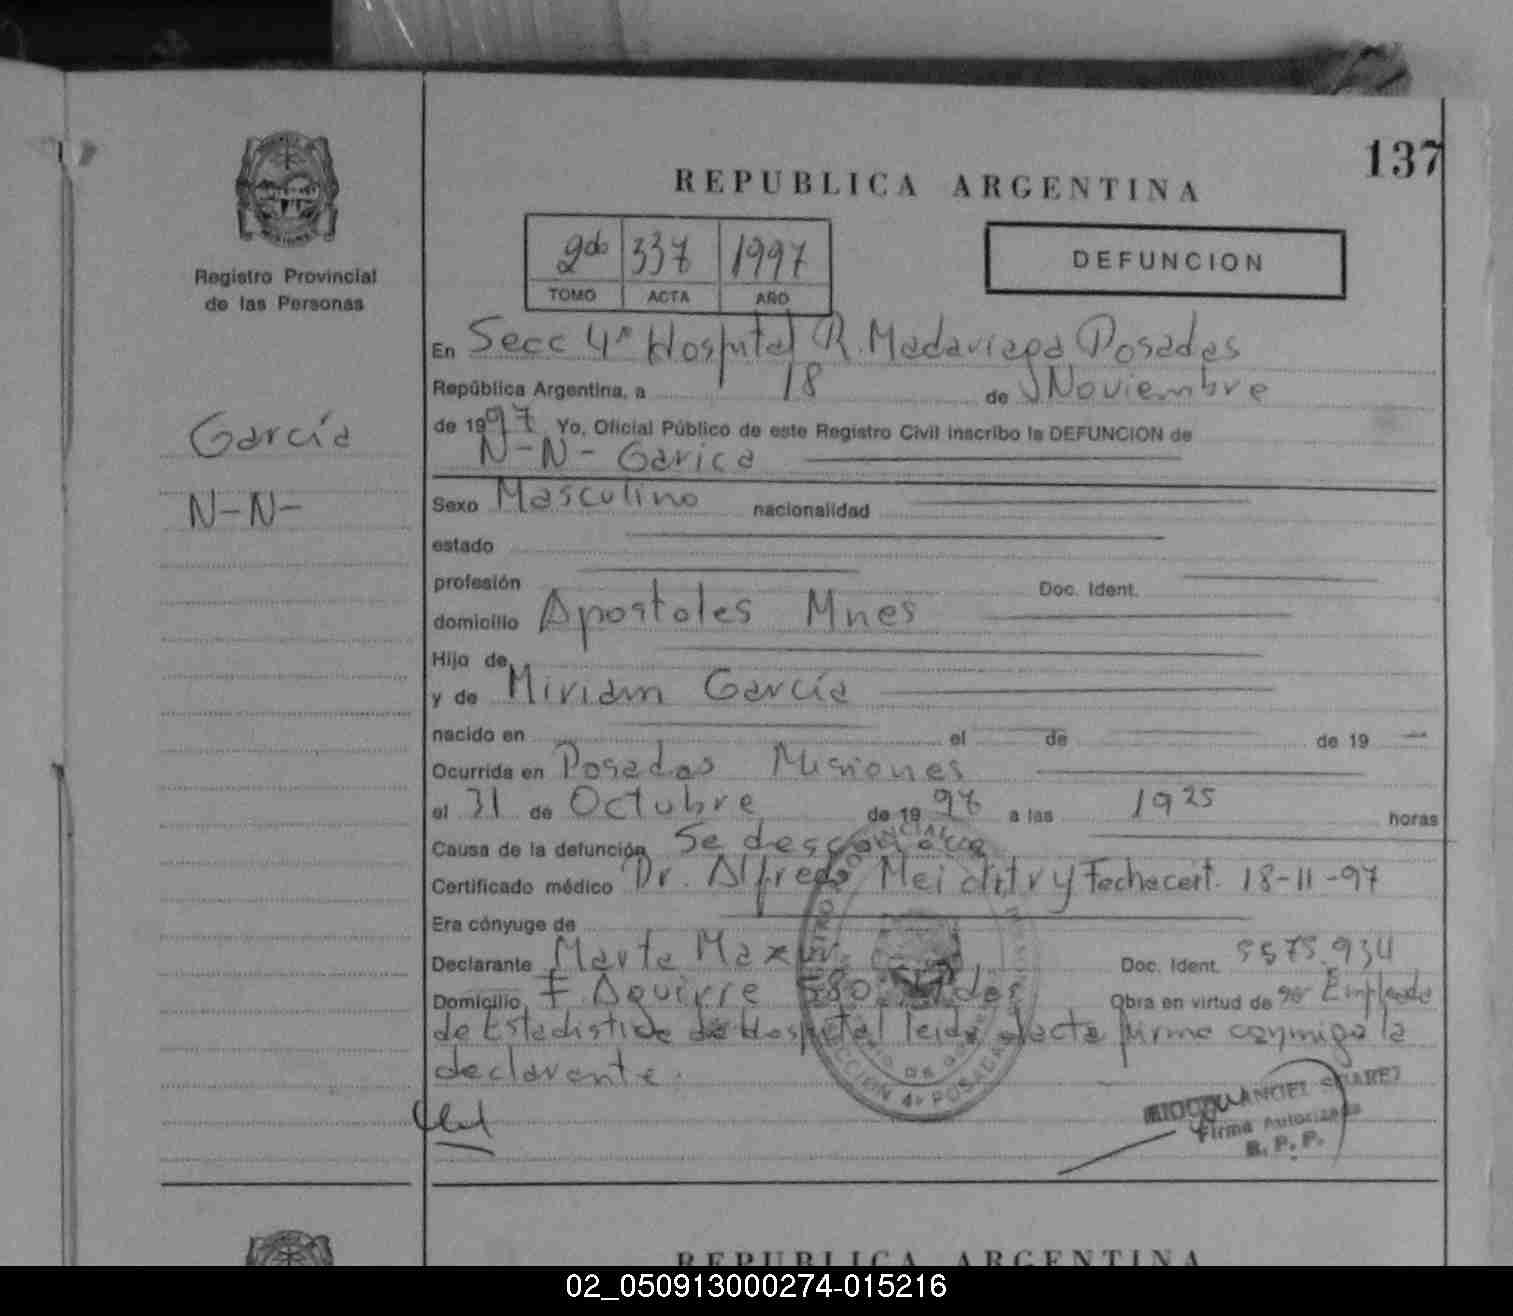 137
REPUBLICA ARGENTINA
2do 337 1997
TOMO ACTA AÑO
DEFUNCION
Registro Provincial
de las Personas
García
N-N-
En Secc 4ª Hospital R. Madariaga Posadas
República Argentina, a 18 de Noviembre
de 1997 Yo, Oficial Público de este Registro Civil inscribo la DEFUNCION de
N-N- Garica
Sexo Masculino nacionalidad
estado
profesión Doc. Ident.
domicilio Apostoles Mnes
Hijo de
y de Miriam García
nacido en el de de 19
Ocurrida en Posadas Misiones
el 31 de Octubre de 1997 a las 19 25 horas
Causa de la defunción Se desconoce
Certificado médico Dr. Alfredo Fecha cert. 18-11-97
Era cónyuge de
Declarante Marta Doc. Ident. 5575.934
Domicilio F. Aguirre Obra en virtud de Empleada
de Estadistica de Hospital leida el acta firma conmigo la
declarante.
ANGEL SUAREZ
Firma Autorizada
R. P. P.
REPUBLICA ARGENTINA
02_050913000274-015216